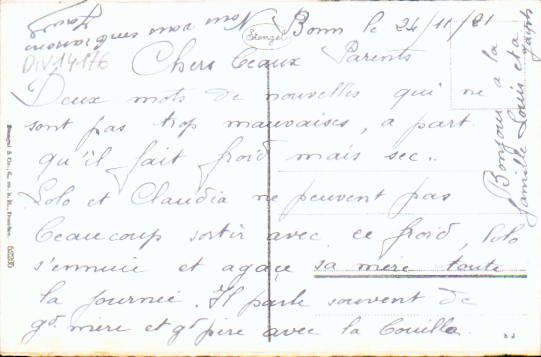 Bonn le 24/11/21
Stengel
DIV14176
Chers beaux Parents
Deux mots de nouvelles qui ne
sont pas trop mauvaises, a part
qu'il fait froid mais sec..
Lolo et Claudia ne peuvent pas
beaucoup sortir avec ce froid, Lolo
s'ennuie et agaçe sa mère toute
la journée. Il parle souvent de
gd mère et gd père avec la
Nous vous embrassons
Bonjour a la
famille Louis et a
Stengel & Co., G. m. b. H., Dresden.